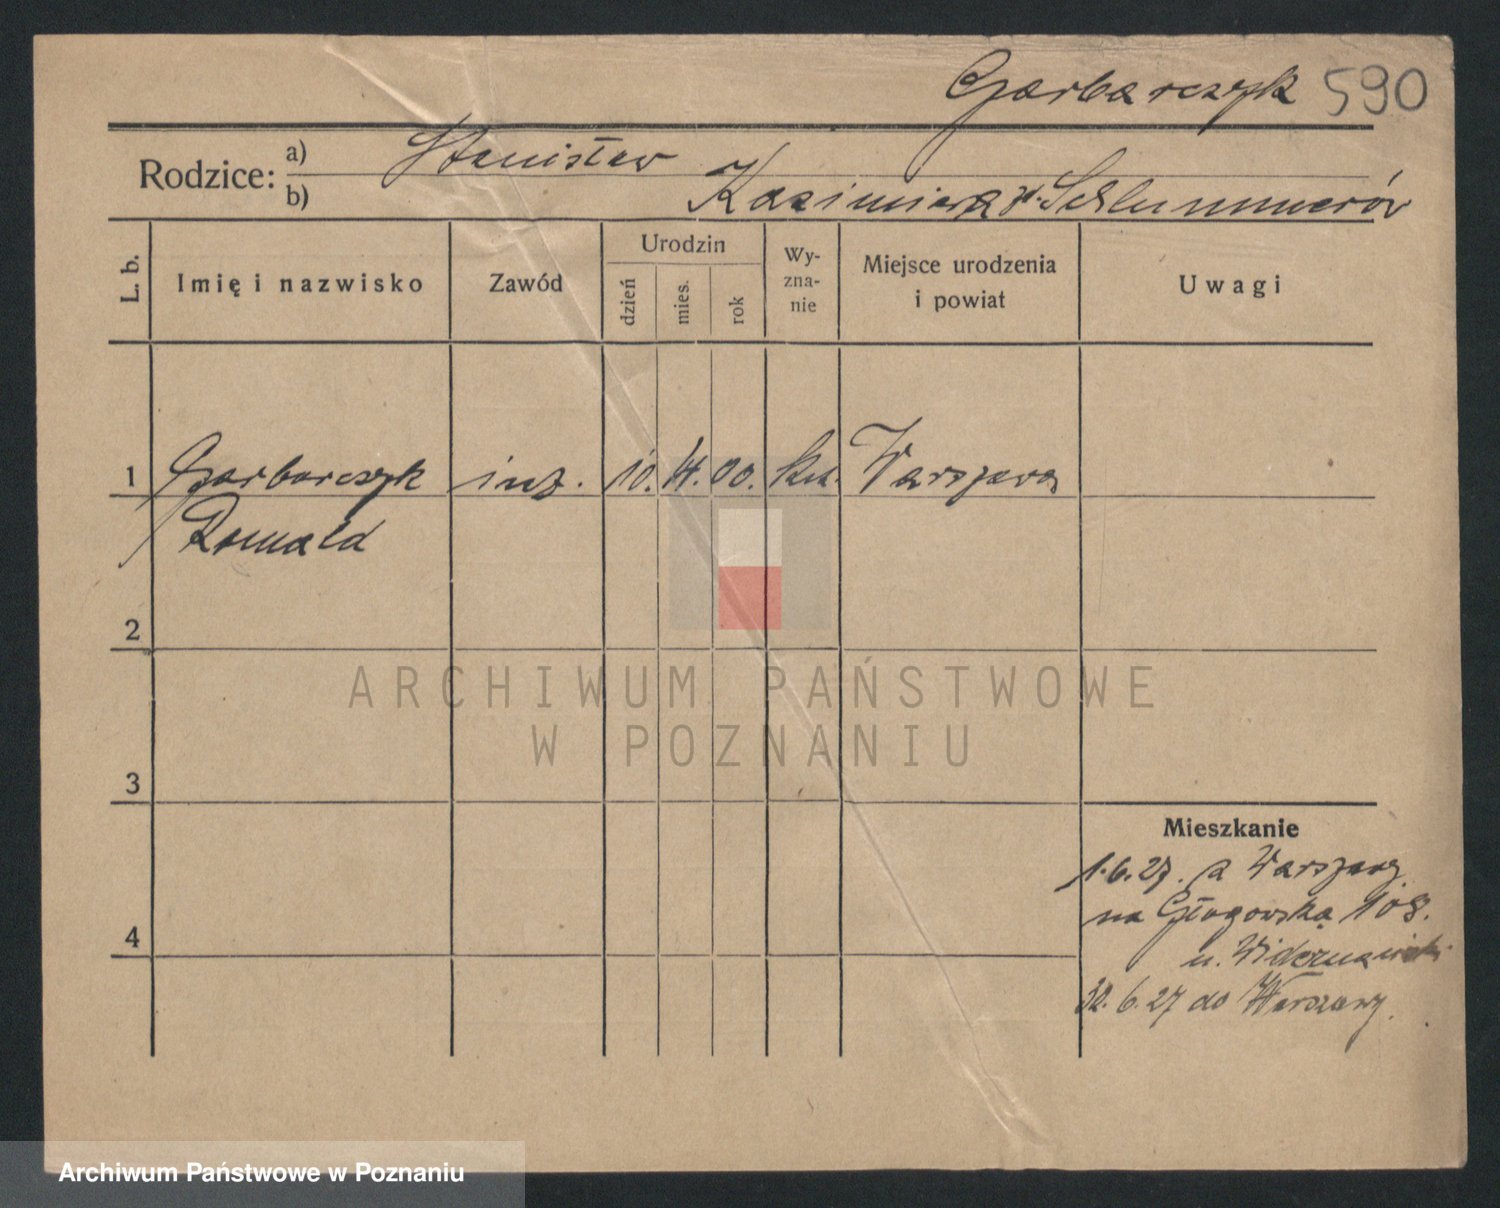 Garbarczyk 590
Rodzice: a) Stanisław
b) Kazimiera z Schlummerów
L. b.
Imię i nazwisko
Zawód
Urodzin
dzień
mies.
rok
Wy-
zna-
nie
Miejsce urodzenia
i powiat
Uwagi
1 Garbarczyk inż. 10. 4. 00. kat. Warszawa
Romald
2
3
4
Mieszkanie
1.6.27. z Warszawy
na Głogowską 108.
u.
30.6.27 do Warszawy.
ARCHIWUM PAŃSTWOWE
W POZNANIU
Archiwum Państwowe w Poznaniu